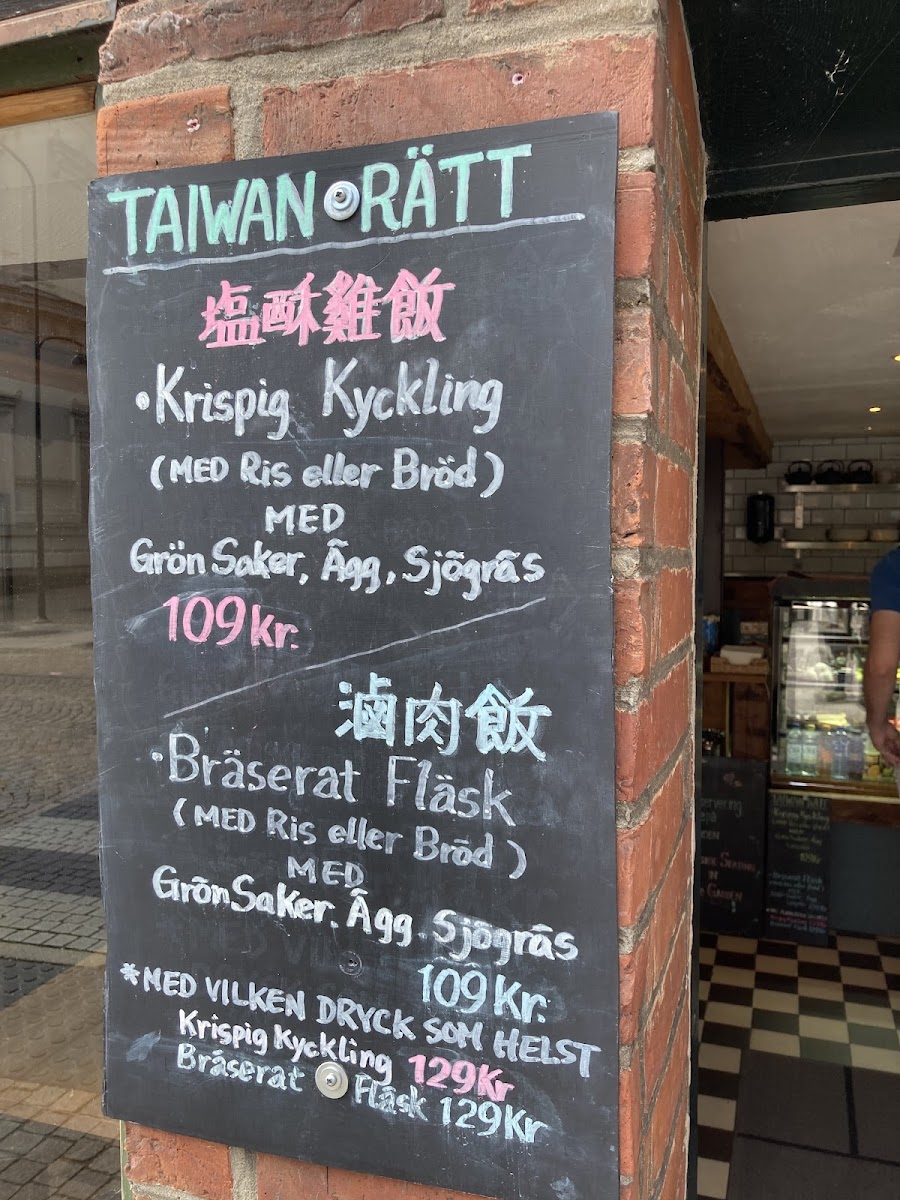 TAIWAN RÄTT
塩酥雞飯
•Krispig Kyckling
(MED Ris eller Bröd)
MED
Grön Saker, Ägg, Sjögräs
109 Kr.
滷肉飯
•Bräserat Fläsk
(MED Ris eller Bröd)
MED
Grön Saker. Ägg. Sjögräs
109 Kr.
*MED VILKEN DRYCK SOM HELST
Krispig Kyckling 129Kr
Bräserat Fläsk 129Kr